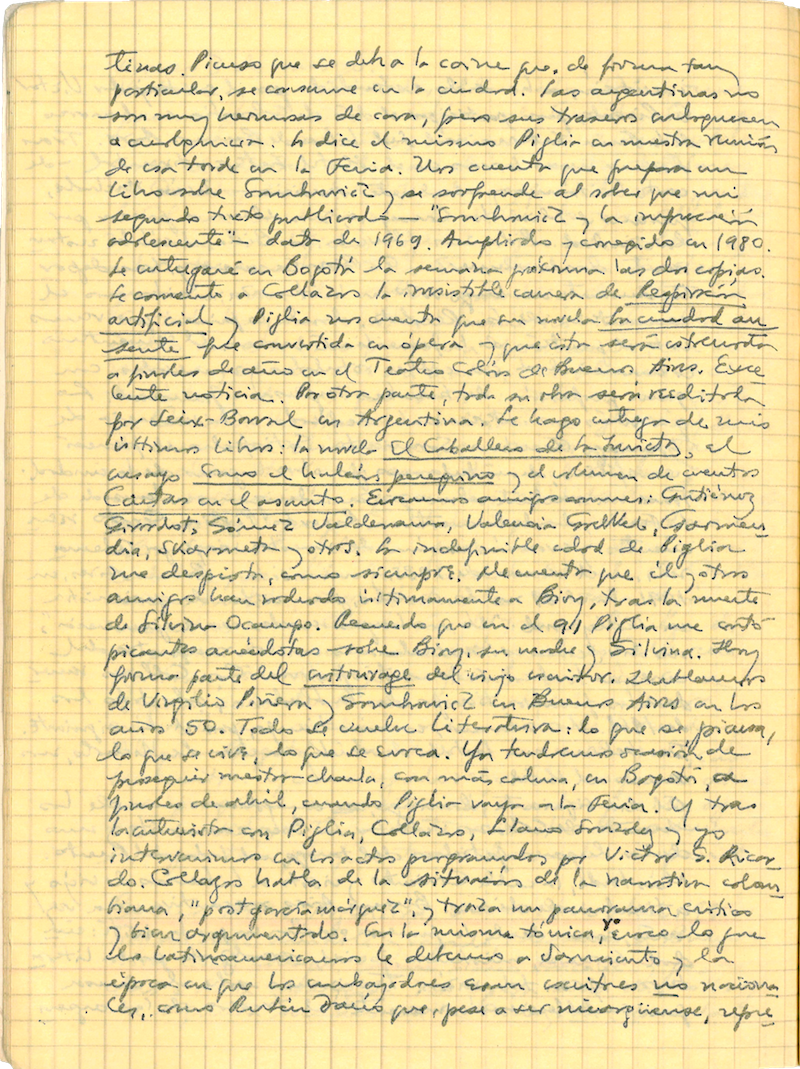 tinas. Pienso que se deba a la carne que, de forma tan
particular, se consume en la ciudad. Las argentinas no
son muy hermosas de cara, pero sus traseros enloquecen
a cualquiera. Lo dice el mismo Piglia en nuestra reunión
de esa tarde en la Feria. Nos cuenta que prepara un
libro sobre Gombrowicz y se sorprende al saber que mi
segundo texto publicado – "Gombrowicz y la imprecación
adolescente" – data de 1969. Ampliado y corregido en 1980.
Le entregaré en Bogotá la semana próxima las dos copias.
Le comento a Collazos la irresistible carrera de Respiración
artificial y Piglia nos cuenta que su novela La ciudad au
sente fue convertida en ópera y que ésta será estrenada
a finales de año en el Teatro Colón de Buenos Aires. Exce
lente noticia. Por otra parte, toda su obra será reeditada
por Seix-Barral en Argentina. Le hago entrega de mis
últimos libros: la novela El Caballero de la Invicta, el
ensayo Como el halcón peregrino y el volumen de cuentos
Cartas en el asunto. Evocamos amigos comunes: Gutiérrez
Girardot, Gómez Valderrama, Valencia Goelkel, Garmen-
dia, Skarmeta y otros. La indefinible edad de Piglia
me despista, como siempre. Me cuenta que él y otros
amigos han rodeado últimamente a Bioy, tras la muerte
de Silvina Ocampo. Recuerdo que en el 91 Piglia me contó
picantes anécdotas sobre Bioy, su madre y Silvina. Hoy
forma parte del entourage del viejo escritor. Hablamos
de Virgilio Piñera y Gombrowicz en Buenos Aires en los
años 50. Todo se vuelve literatura: lo que se piensa,
lo que se vive, lo que se evoca. Ya tendremos ocasión de
proseguir nuestra charla, con más calma, en Bogotá, a
finales de abril, cuando Piglia vaya a la Feria. Y tras
la entrevista con Piglia, Collazos, Llano González y yo
intervenimos en los actos programados por Víctor G. Ricar
do. Collazos habla de la situación de la narrativa colom-
biana, "postgarcíamárquez", y traza un panorama crítico
y bien argumentado. En la misma tónica, yo evoco lo que
los latinoamericanos le debemos a Sarmiento y la
época en que los embajadores eran escritores no naciona
les, como Rubén Darío que, pese a ser nicaragüense, repre-